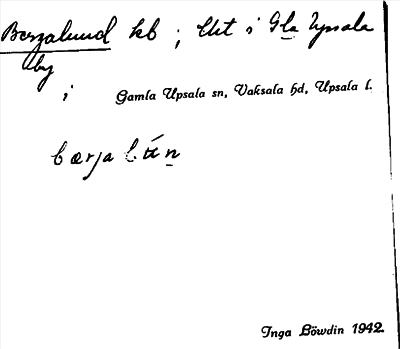 Bergalund kb ; Ekt i Gla Upsala
by
;
Gamla Upsala sn, Vaksala hd, Upsala l.
bærja
Inga Löwdin 1942.